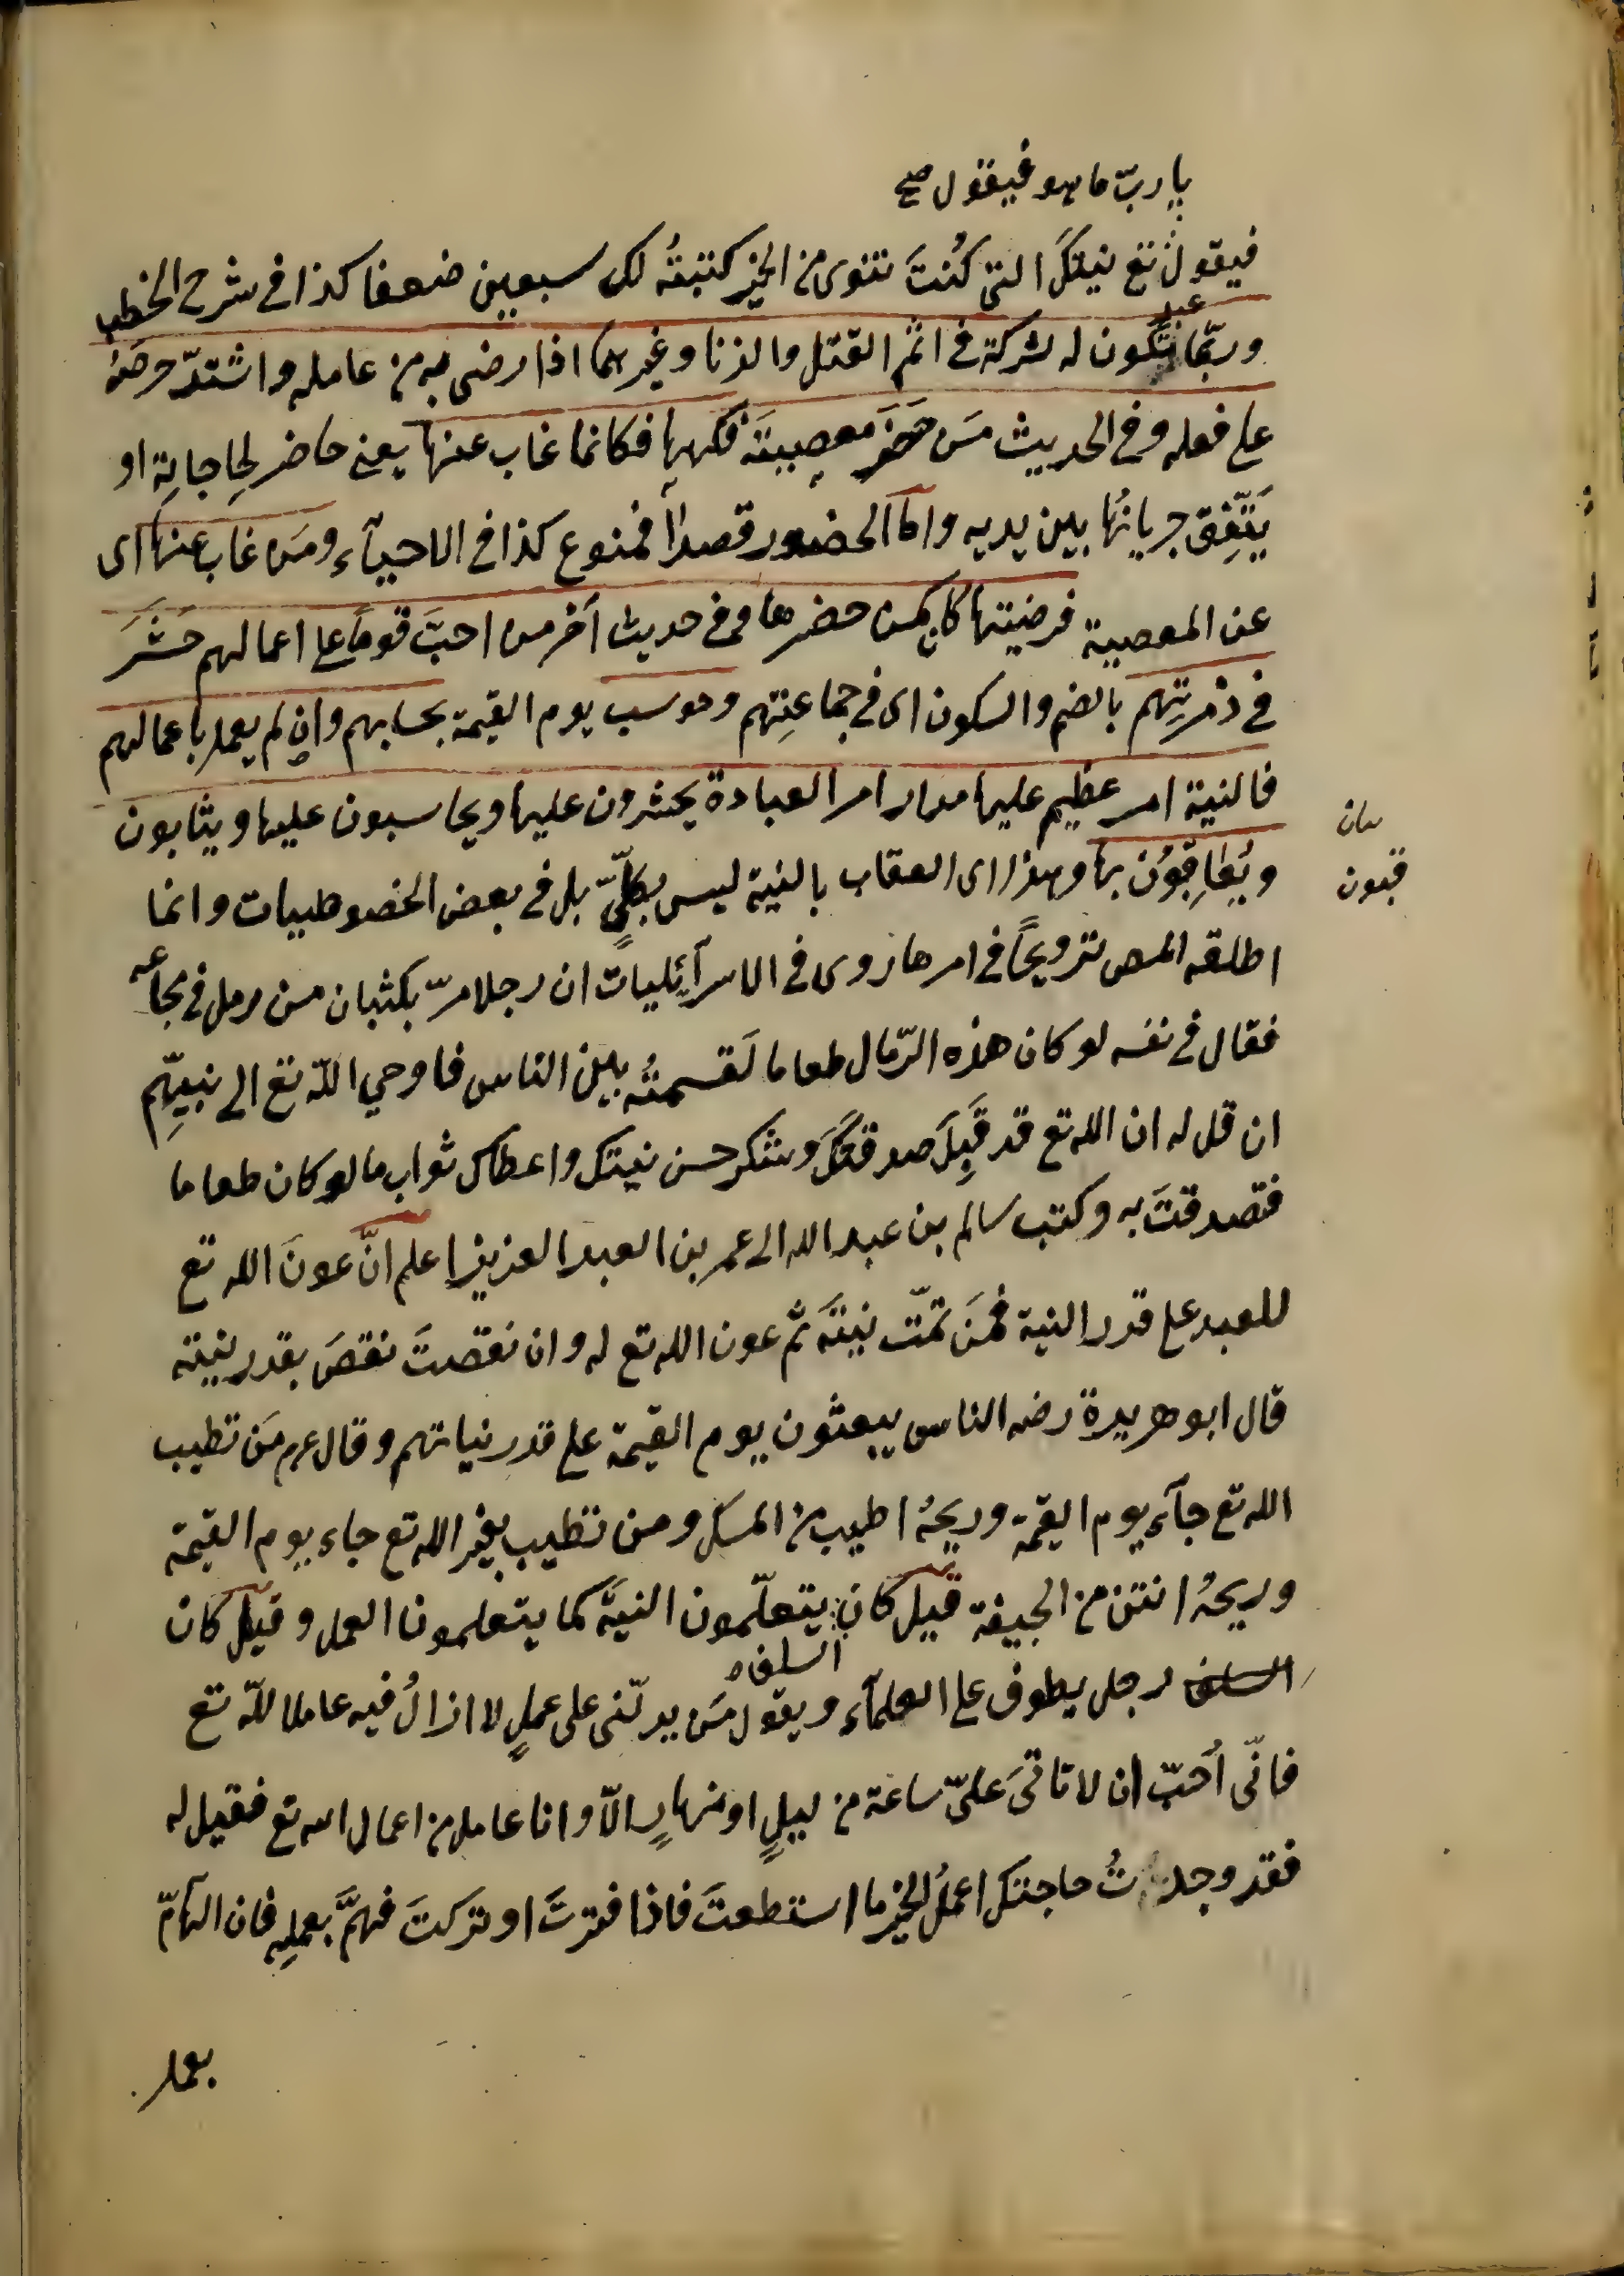 يا ربّ ما هو فيقول صح
فيقول تع نيتكَ التى كُنتَ تنوى من الخير كتبتُه لك سبعين ضعفا كذا فى شرح الخطب
وربّما تكون له شركة فى اثم القتل والزنا وغيرهما اذا رضى به من عامله واشتدّ حرصَهُ
على فعله وفى الحديث مَن حَضَر معصيتَه فكرهها فكانما غاب عنها يعنى حاضر لحِاجاتِهِ او
يَتّفِق جريانُها بين يديه وامّا الحضور قصدا فممنوع كذا فى الاحيآء ومَن غاب عنها اى
عن المعصية فرضيتها كان كمن حضرها وفى حديث آخر من احبَ قوماً على اعمالهم حَشَرَ
فى ذمرتِهم بالضم والسكون اى فى جماعتِهم وحوسب يوم القيمة بحسابهم وان لم يعمل باعمالهم
فالنية امر عظيم عليها مدار امر العبادة يحشرون عليها ويحاسبون عليها ويثابون
ويُعَاقِبوُن بها وهذا اى العقاب بالنية ليس بكلّىٍّ بل فى بعض الخصوصيات وانما
قبون
اطلقه المص ترويجاً فى امرها روى فى الاسرآئيليات ان رجلا مرّ بكثبان من رمل فى مجاعه
فقال فى نفسه لو كان هذه الرّمال طعاما لَقسمتُه بين الناس فاوحي اللّه تع الى نبيّهِم
ان قل له ان الله تع قد قَبِلَ صدقتكَ وشكر حسن نيتك واعطاك ثواب ما لو كان طعاما
فتصدقتَ به وكتب سالم بن عبد الله الى عمر بن العبد العزيز اعلم انّ عونَ الله تع
للعبد على قدر النية فمَن تمّت نيتَه تمّ عون الله تع له وان نقصتَ نقصَ بقدر نيته
قال ابو هريرة رضه الناس يبعثون يوم القيمة على قدر نياتهم وقال عم مَن تطيب
الله تع جآء يوم القيمة وريحُه اطيب من المسك ومن تطيب بغير الله تع جاء يوم القيمة
وريحُه انتن من الجيفة قيل كان يتعلّمون النيَّة كما يتعلمون العمل وقيل كان
السلف
السلف رجل يطوف على العلمآء ويقول مَن يدلّنى على عملٍ لا ازالُ فيه عاملا للّه تع
فانّى اُحبّ ان لا تاتىَ علىّ ساعة من ليلٍ او نهارٍ الّا وانا عامل من اعمال الله تع فقيل له
فقد وجدتُ حاجتك اعملُ الخير ما استطعتَ فاذا فترتَ او تركتَ فهمَّ بعملِه فان الهآمّ
بعمل